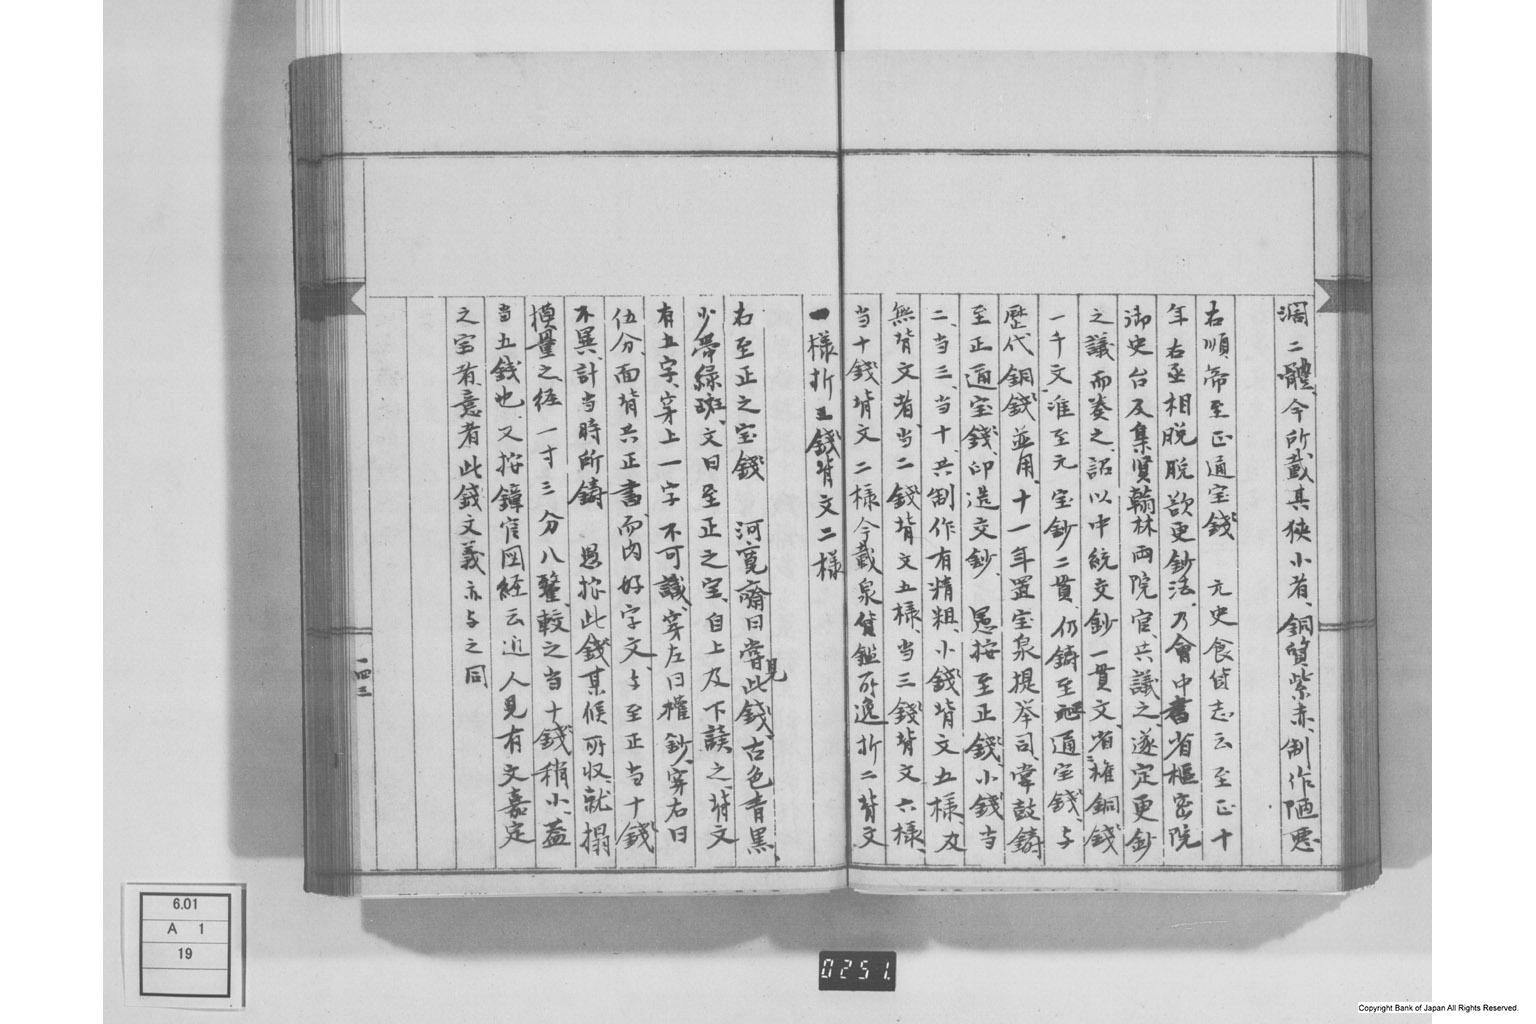 濶二體、今所載其狹小者、銅質紫赤、制作陋悪
右順帝至正通宝錢 元史食貨志云至正十
年右丞相脱脱欲更鈔法、乃會中書省樞密院
御史台及集賢翰林両院官、共議之、遂定更鈔
之議而奏之、詔以中統交鈔一貫文、省権銅錢
一千文、准至元宝鈔二貫、仍鋳至正通宝錢、与
歴代銅錢並用、十一年置宝泉提挙司、掌鼓鋳
至正通宝錢、印造交鈔、 愚按至正錢、小錢当
二、当三、当十、共制作有精粗、小錢背文五様及
無背文者、当二錢背文五様、当三錢背文六様、
当十錢背文二様今載泉貨鑑所逸折二背文
一様折五錢背文二様
右至正之宝錢 河寛斎曰嘗見此錢、古色青黒、
少帯緑斑、文曰至正之宝、自上及下読之、背文
有五字、穿上一字不可識、穿左曰権鈔、穿右曰
伍分、面背共正書、而内好字文、与至正当十錢
不異、計当時所鋳 愚按此錢某侯所収、就搨
摸量之径一寸三分八釐、較之当十錢稍小、蓋
当五錢也、又按鐘官図経云近人見有文嘉定
之宝者、意者此錢文義亦与之同
一四三
6.01
A 1
19
0251.
Copyright Bank of Japan All Rights Reserved.